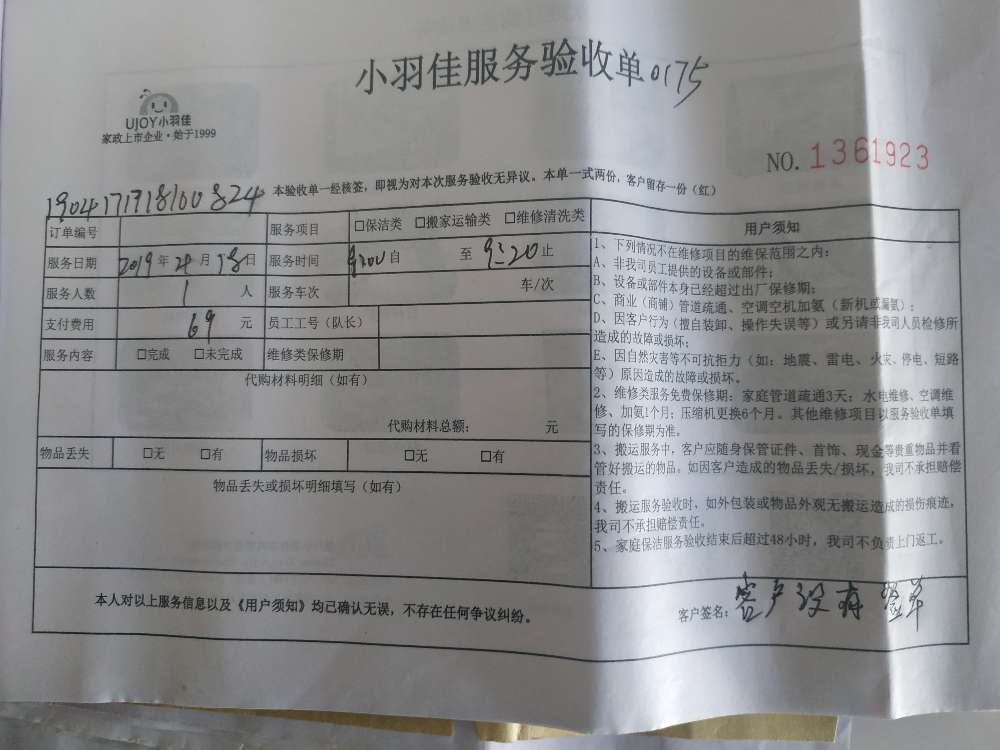 小羽佳服务验收单0175
UJOY小羽佳
家政上市企业·始于1999
NO.1361923
本验收单一经核签，即视为对本次服务验收无异议。本单一式两份，客户留存一份（红）
订单编号 服务项目 □保洁类 □搬家运输类 □维修清洗类
服务日期 2019年4月18日 服务时间 自 至 止
服务人数 1 人 服务车次 车/次
支付费用 69 元 员工工号（队长）
服务内容 □完成 □未完成 维修类保修期
代购材料明细（如有）
代购材料总额： 元
物品丢失 □无 □有 物品损坏 □无 □有
物品丢失或损坏明细填写（如有）
用户须知
1、下列情况不在维修项目的维保范围之内：
A、非我司员工提供的设备或部件；
B、设备或部件本身已经超过出厂保修期；
C、商业（商铺）管道疏通、空调空机加氨（新机或漏氨）；
D、因客户行为（擅自装卸、操作失误等）或另请非我司人员检修所
造成的故障或损坏；
E、因自然灾害等不可抗拒力（如：地震、雷电、火灾、停电、短路
等）原因造成的故障或损坏。
2、维修类服务免费保修期：家庭管道疏通3天；水电维修、空调维
修、加氨1个月；压缩机更换6个月。其他维修项目以服务验收单填
写的保修期为准。
3、搬运服务中，客户应随身保管证件、首饰、现金等贵重物品并看
管好搬运的物品。如因客户造成的物品丢失/损坏，我司不承担赔偿
责任。
4、搬运服务验收时，如外包装或物品外观无搬运造成的损伤痕迹，
我司不承担赔偿责任。
5、家庭保洁服务验收结束后超过48小时，我司不负责上门返工。
本人对以上服务信息以及《用户须知》均已确认无误，不存在任何争议纠纷。
客户签名：客户没有签单